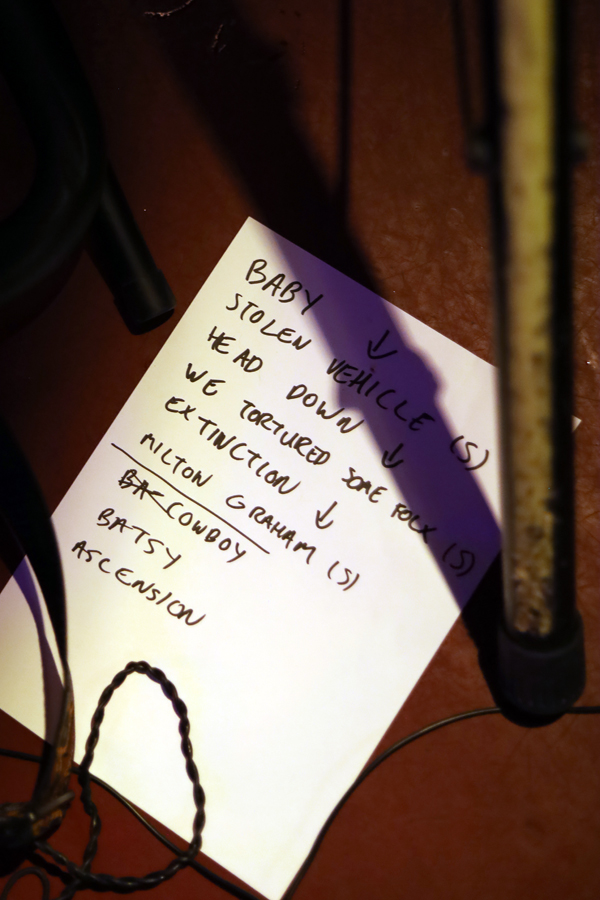 BABY ↓
STOLEN VEHICLE (S)
HEAD DOWN ↓
WE TORTURED SOME FOLK (S)
EXTINCTION ↓
MILTON GRAHAM (S)
COWBOY
BATSY
ASCENSION